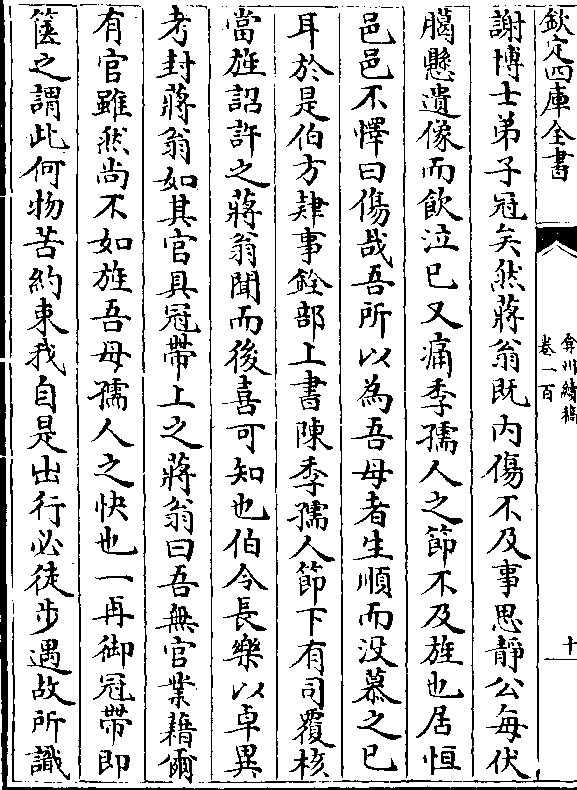 欽定四庫全書
弇州續稿
卷一百
十
謝博士弟子冠矣然蔣翁既內傷不及事思靜公每伏
臈懸遺像而飲泣已又痛季孺人之節不及旌也居恒
邑邑不懌曰傷哉吾所以為吾母者生順而没慕之已
耳於是伯方肄事銓部上書陳季孺人節下有司覆核
當旌詔許之蔣翁聞而後喜可知也伯令長樂以卓異
考封蔣翁如其官具冠帶上之蔣翁曰吾無官業藉爾
有官雖然尚不如旌吾母孺人之快也一再御冠帶即
篋之謂此何物苦約束我自是出行必徒步遇故所識